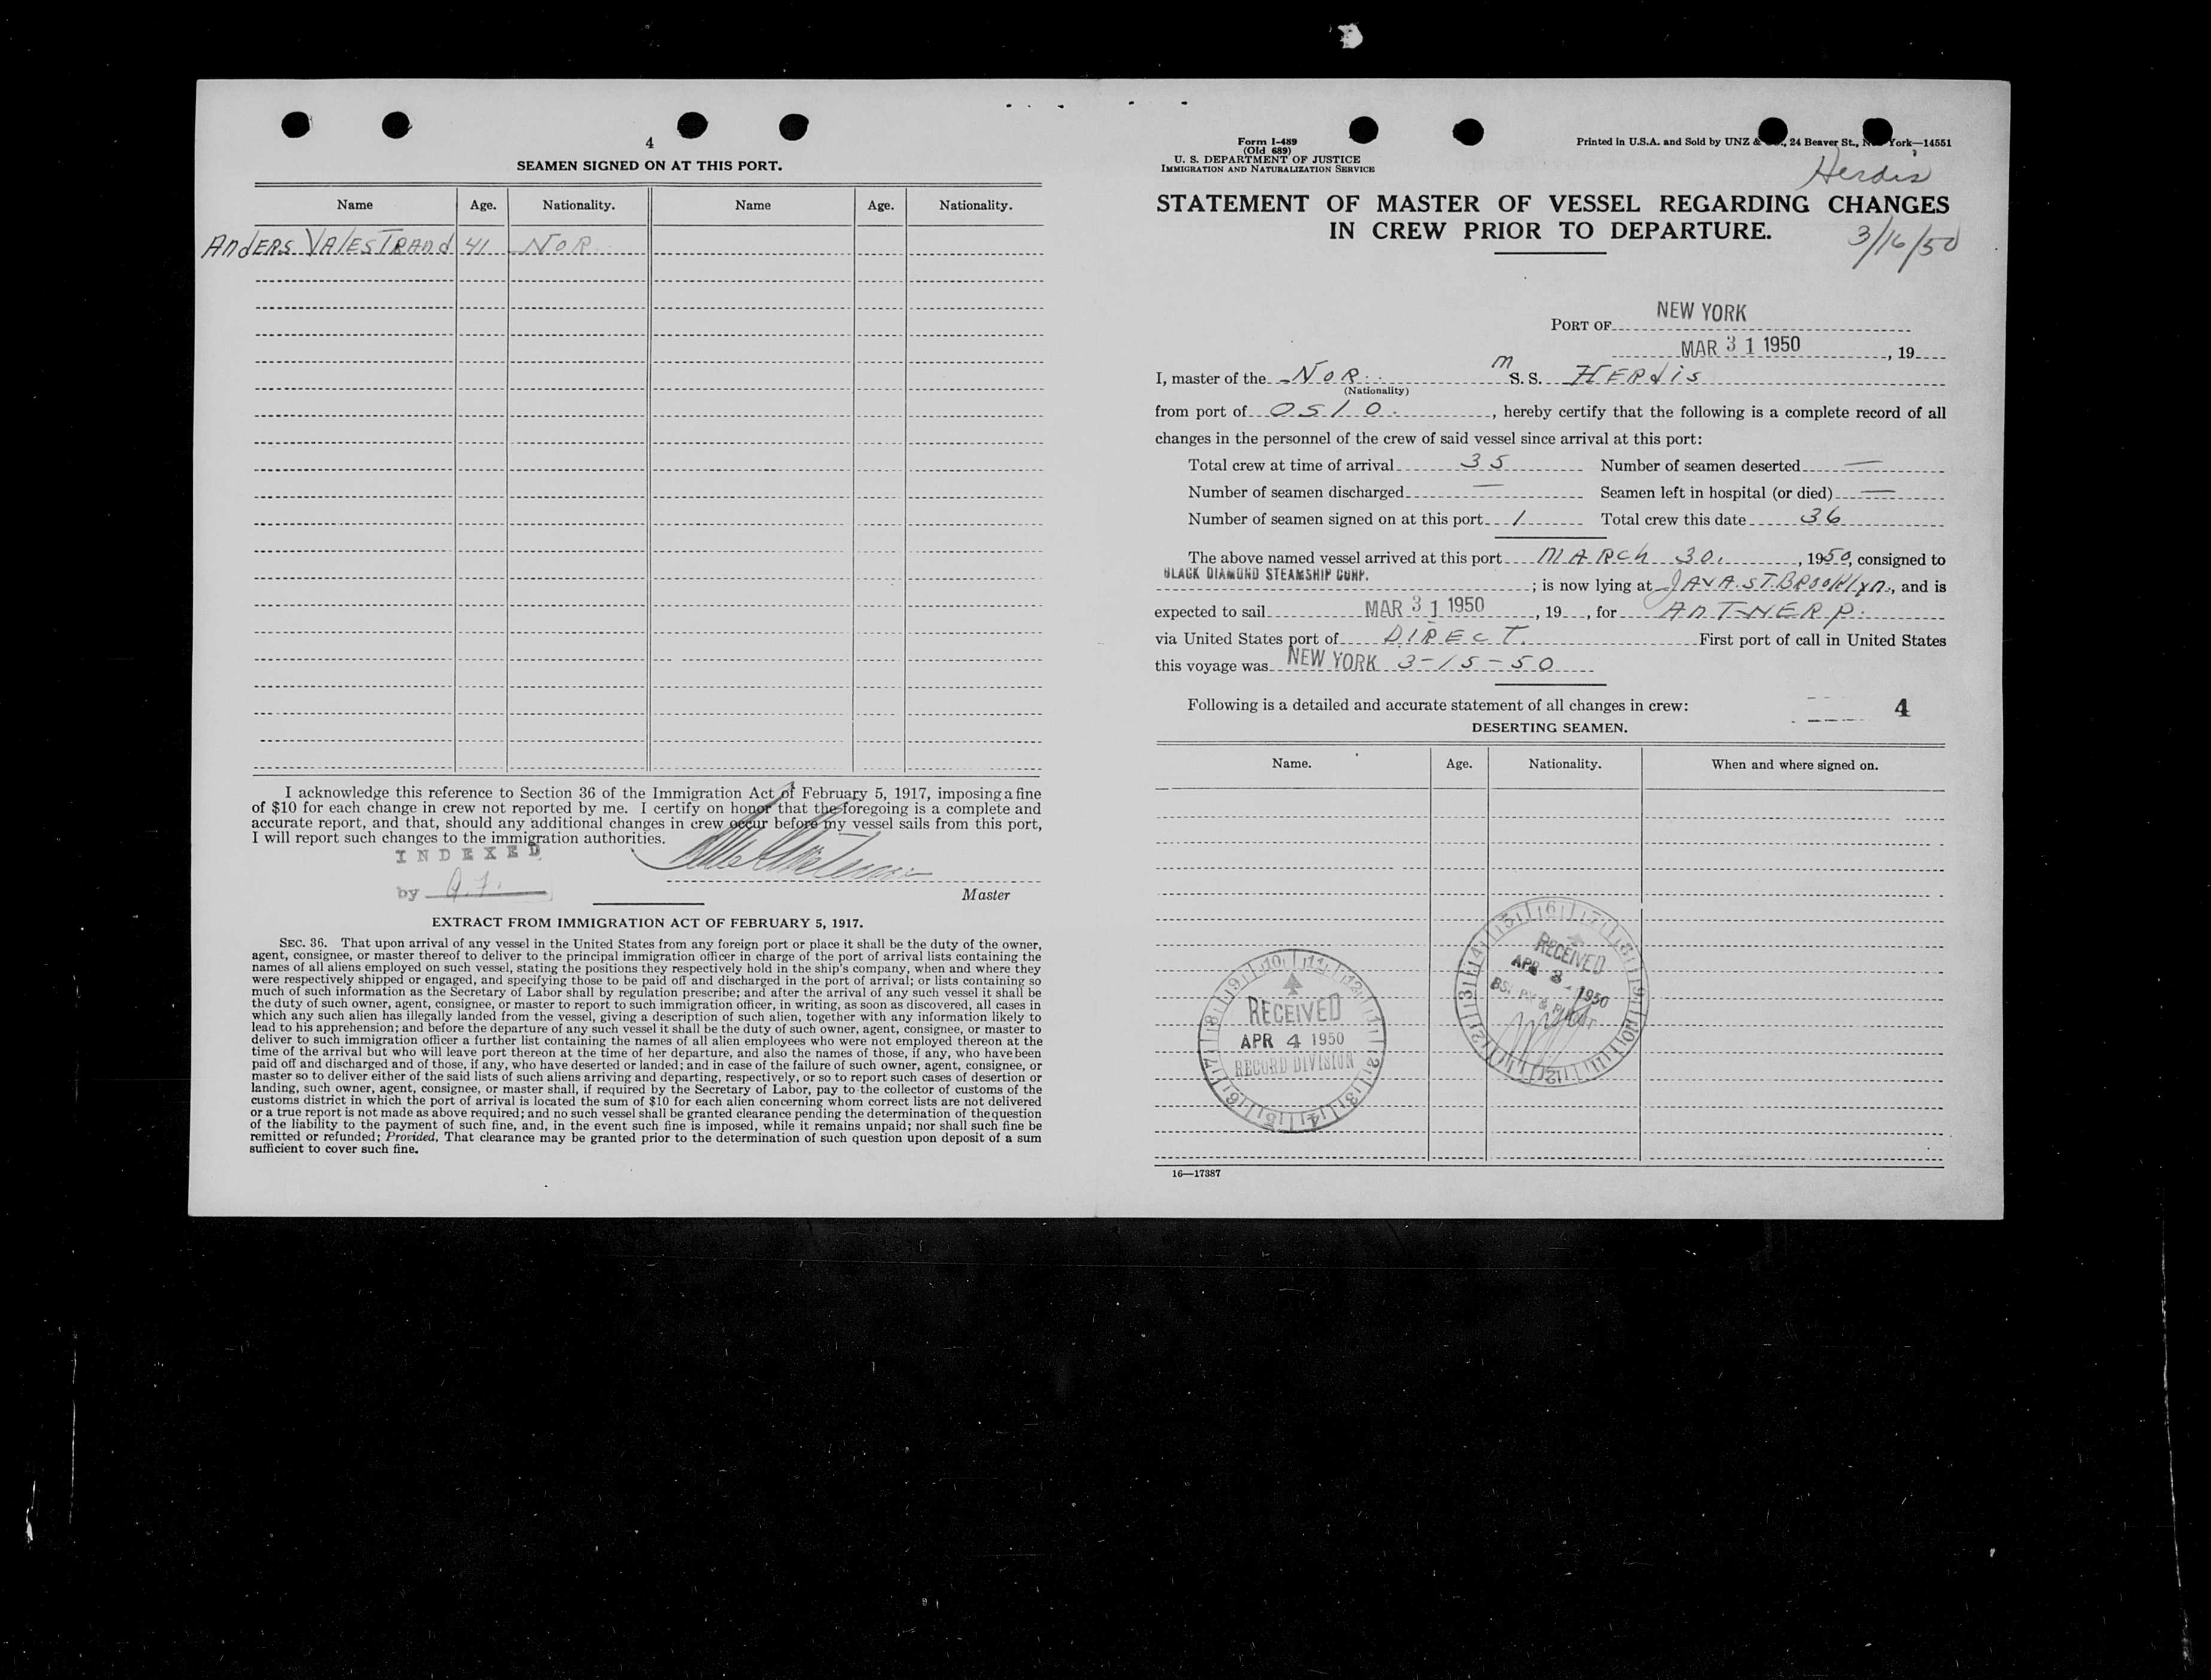 4
SEAMEN SIGNED ON AT THIS PORT.
Name Age. Nationality. Name Age. Nationality.
AndERS VAlESTRAnd 41 NOR
I acknowledge this reference to Section 36 of the Immigration Act of February 5, 1917, imposing a fine
of $10 for each change in crew not reported by me. I certify on honor that the foregoing is a complete and
accurate report, and that, should any additional changes in crew occur before my vessel sails from this port,
I will report such changes to the immigration authorities.
INDEXED
by
Master
EXTRACT FROM IMMIGRATION ACT OF FEBRUARY 5, 1917.
SEC. 36. That upon arrival of any vessel in the United States from any foreign port or place it shall be the duty of the owner,
agent, consignee, or master thereof to deliver to the principal immigration officer in charge of the port of arrival lists containing the
names of all aliens employed on such vessel, stating the positions they respectively hold in the ship's company, when and where they
were respectively shipped or engaged, and specifying those to be paid off and discharged in the port of arrival; or lists containing so
much of such information as the Secretary of Labor shall by regulation prescribe; and after the arrival of any such vessel it shall be
the duty of such owner, agent, consignee, or master to report to such immigration officer, in writing, as soon as discovered, all cases in
which any such alien has illegally landed from the vessel, giving a description of such alien, together with any information likely to
lead to his apprehension; and before the departure of any such vessel it shall be the duty of such owner, agent, consignee, or master to
deliver to such immigration officer a further list containing the names of all alien employees who were not employed thereon at the
time of the arrival but who will leave port thereon at the time of her departure, and also the names of those, if any, who have been
paid off and discharged and of those, if any, who have deserted or landed; and in case of the failure of such owner, agent, consignee, or
master so to deliver either of the said lists of such aliens arriving and departing, respectively, or so to report such cases of desertion or
landing, such owner, agent, consignee, or master shall, if required by the Secretary of Labor, pay to the collector of customs of the
customs district in which the port of arrival is located the sum of $10 for each alien concerning whom correct lists are not delivered
or a true report is not made as above required; and no such vessel shall be granted clearance pending the determination of the question
of the liability to the payment of such fine, and, in the event such fine is imposed, while it remains unpaid; nor shall such fine be
remitted or refunded; Provided, That clearance may be granted prior to the determination of such question upon deposit of a sum
sufficient to cover such fine.
Form I-489
(Old 689)
U. S. DEPARTMENT OF JUSTICE
IMMIGRATION AND NATURALIZATION SERVICE
Printed in U.S.A. and Sold by UNZ & , 24 Beaver St., York—14551
Herdis
STATEMENT OF MASTER OF VESSEL REGARDING CHANGES
IN CREW PRIOR TO DEPARTURE.
3/16/50
PORT OF NEW YORK
MAR 31 1950, 19
I, master of the NOR. M S. S. HERdis
(Nationality)
from port of OSlO., hereby certify that the following is a complete record of all
changes in the personnel of the crew of said vessel since arrival at this port:
Total crew at time of arrival 35 Number of seamen deserted —
Number of seamen discharged — Seamen left in hospital (or died) —
Number of seamen signed on at this port 1 Total crew this date 36
The above named vessel arrived at this port MARCh 30., 1950, consigned to
BLACK DIAMOND STEAMSHIP CORP.; is now lying at JAVA. ST. BROOKlyn., and is
expected to sail MAR 31 1950, 19, for AnTWERP.
via United States port of DIRECT. First port of call in United States
this voyage was NEW YORK 3-15-50
Following is a detailed and accurate statement of all changes in crew: 4
DESERTING SEAMEN.
Name. Age. Nationality. When and where signed on.
RECEIVED
APR 3 - 1950
RECEIVED
APR 4 1950
RECORD DIVISION
16—17387